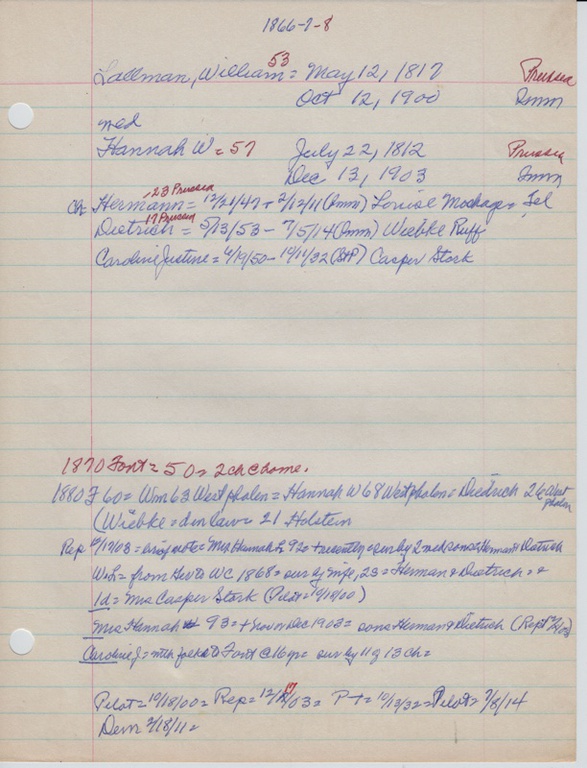 1866-7-8
Lallman, William = 53 May 12, 1817 Prussia
Oct 12, 1900 Imm
med
Hannah W = 57 July 22, 1812 Prussia
Dec 13, 1903 Imm
23 Prussia
Ch Hermann = 12/21/47 + 2/12/11 (Imm) Louise
17 Prussia
Dietrich = 5/13/53 - 7/5/14 (Imm) Wiebke Ruff
Caroline Justine = 4/19/50 - 10/11/32 (StP) Casper Stork
1870 Font = 50 = 2 ch @ home.
1880 F 60 = Wm 63 Westphalen = Hannah W 68 Westphalen = Diedrich 26 West
phalen
(Wiebke = d in law = 21 Holstein
Rep 12/17/03 = = Mrs Hannah L 92 + recently = sur by 2 sons Herman & Dietrich
W L = from to WC 1868 = sur by wife, 2 s = Herman & Dietrich = +
1 d = Mrs Casper Stork (Pilot = 10/18/00)
Mrs Hannah 93 = + Dec 1903 = sons Herman & Dietrich (Rept
Caroline J = with folks to Font @ 16 yr = sur by 11 of 13 ch =
Pilot = 10/18/00 = Rep = 12/17/03 = P+ = 10/13/32 = Pilot = 7/8/14
Dem 2/18/11 =